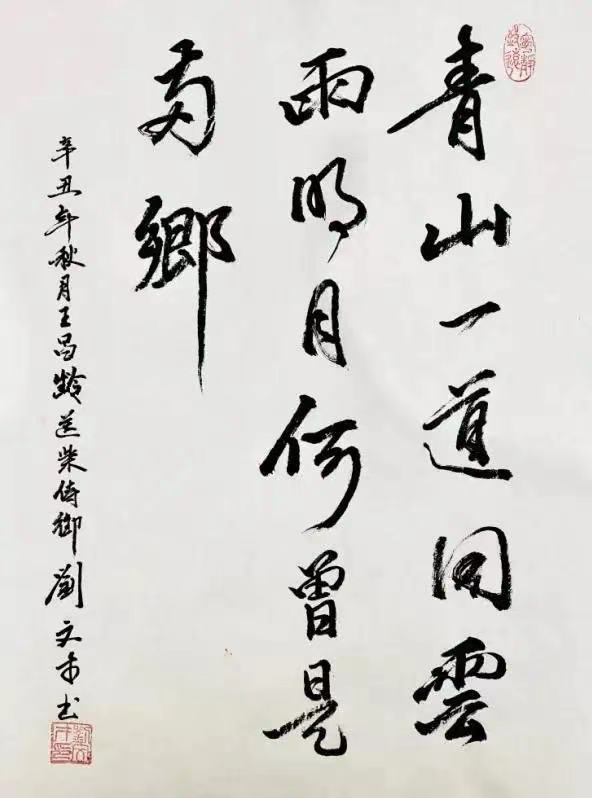 青山一道同雲
雨明月何曾是
兩鄉
辛丑年秋月王昌龄送柴侍御劉文書